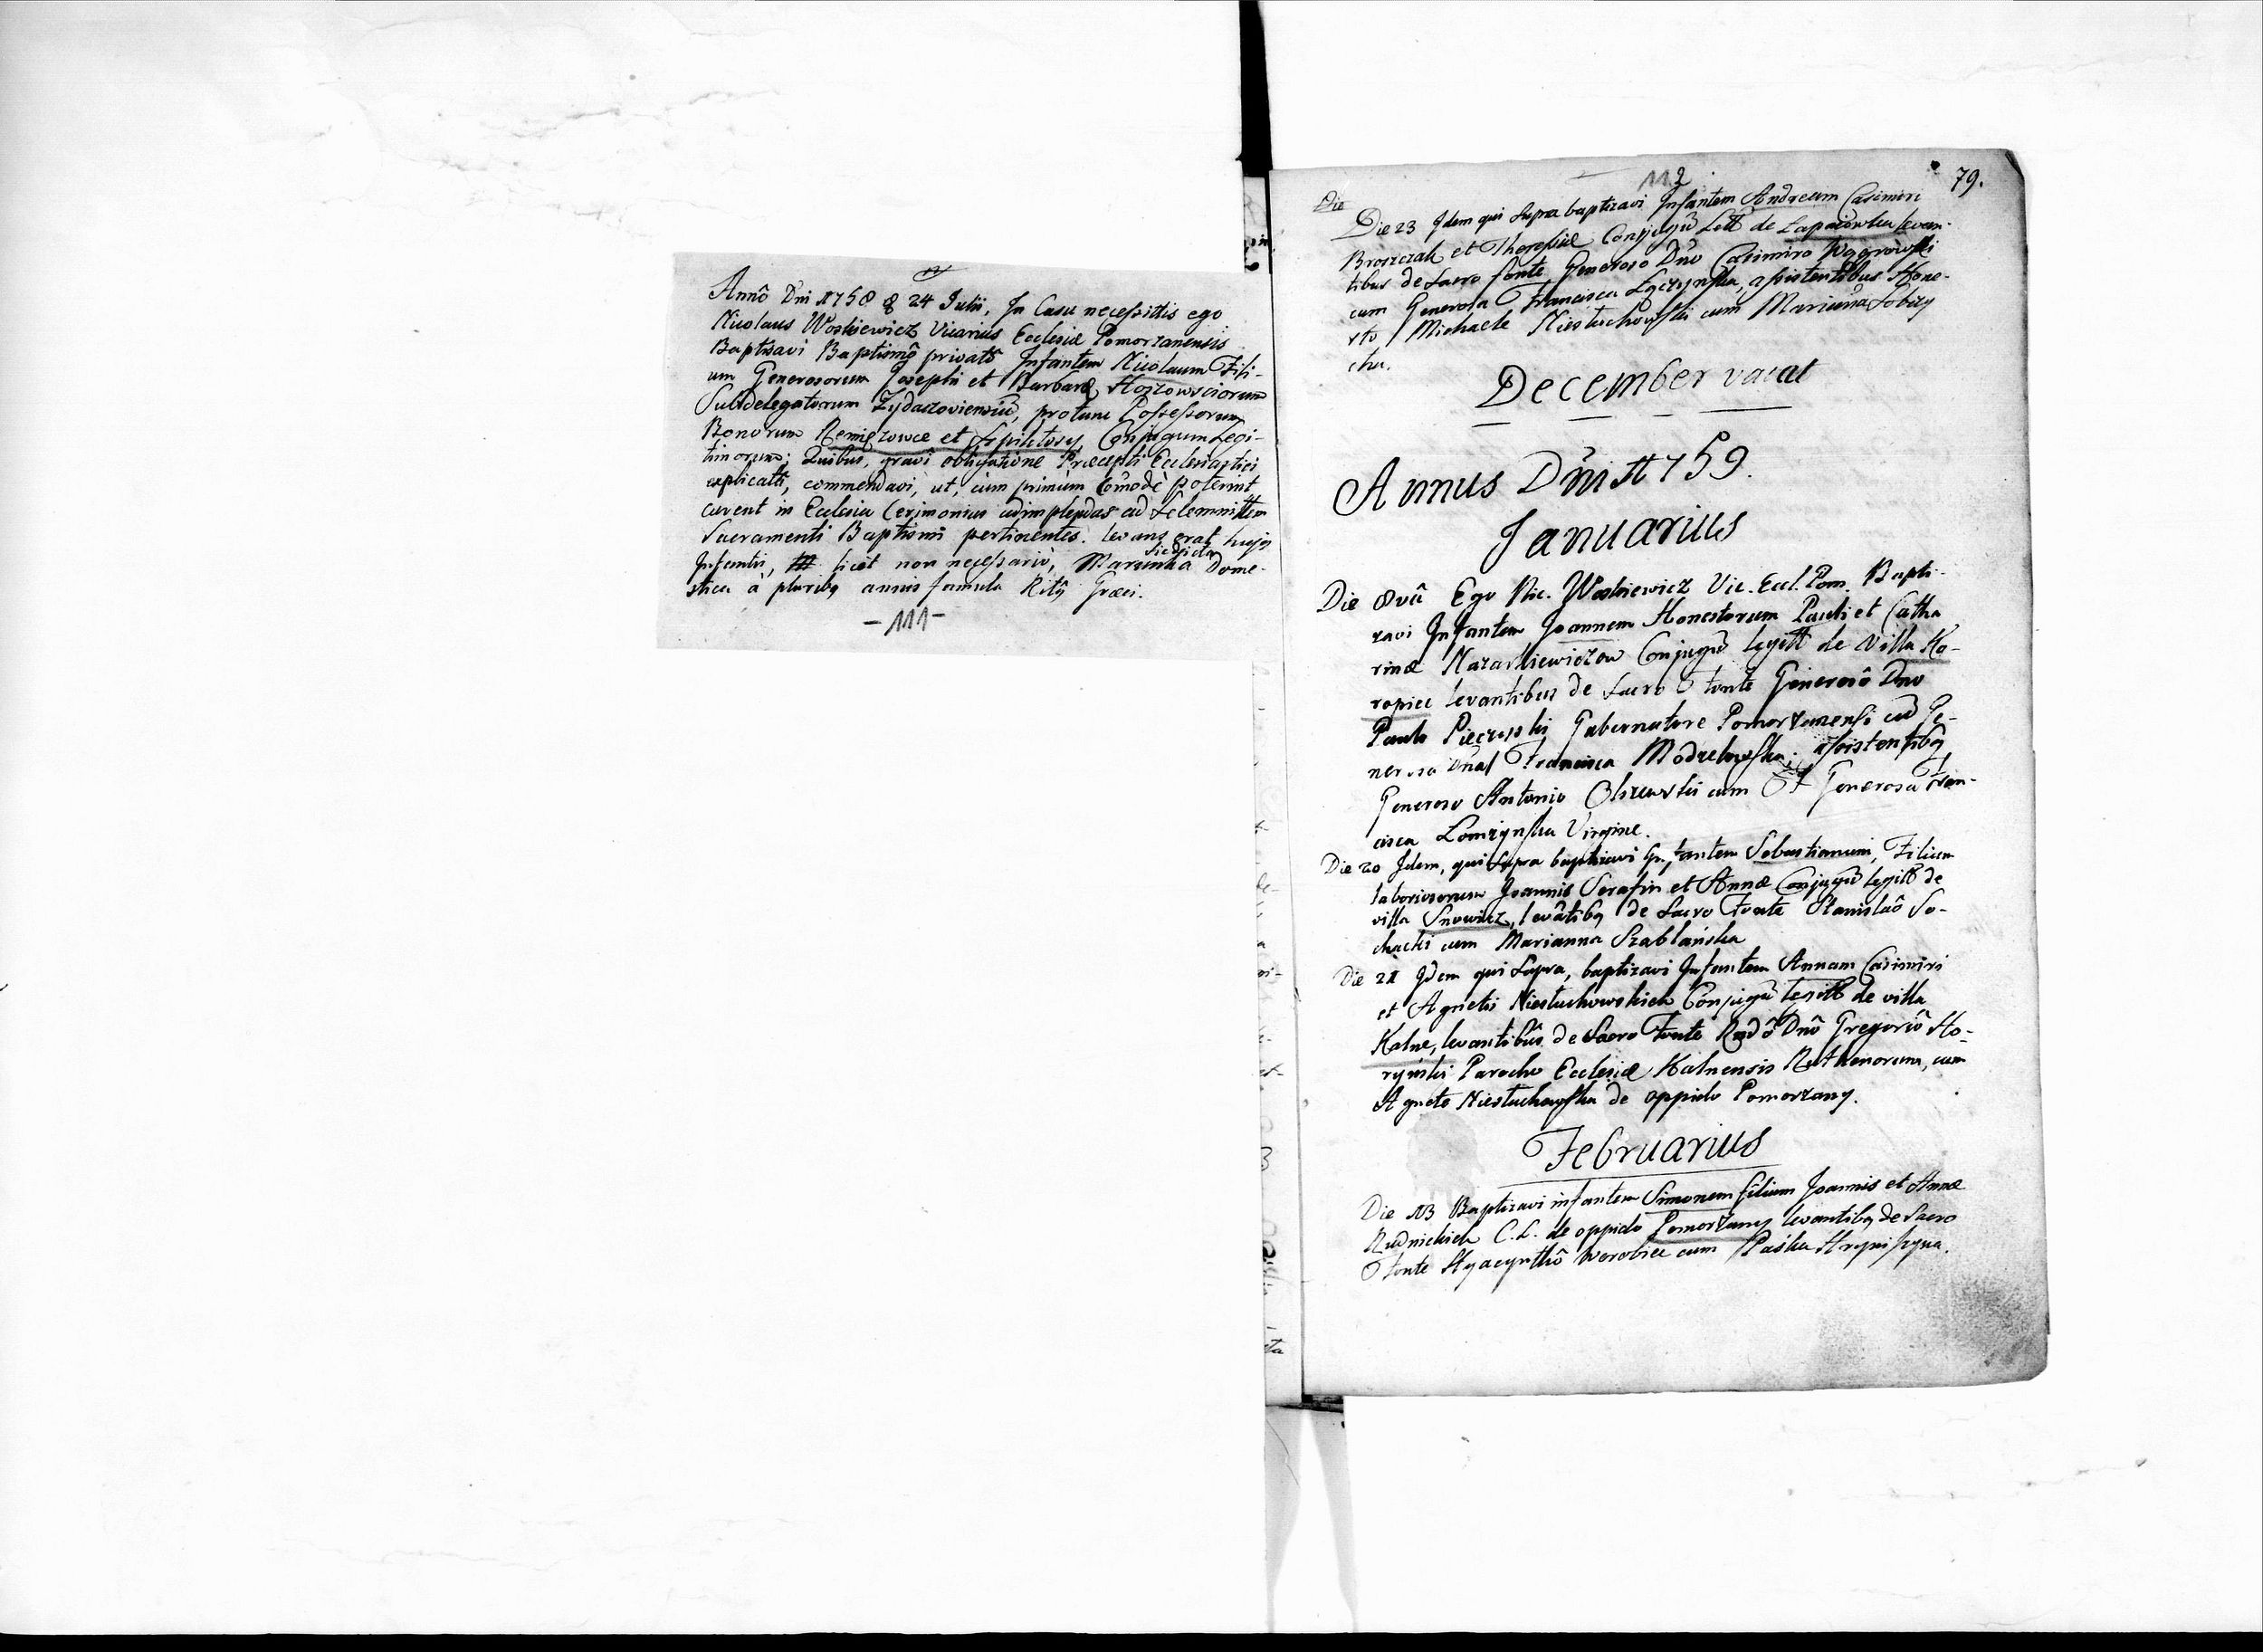 Annô Dni 1758 d 24 Julii, In Casu necessittis ego
Nicolaus Woskiewicz Vicarius Ecclesiæ Pomorzanensis
Baptisavi Baptismô privatô Infantem Nicolaum Fili-
um Generosorum Josephi et Barbaræ Hoszowsciorum
Subdelegatorum Zydaczoviensiũ, protunc Possessorum
Bonorum Remizowce et Conjugum Legi-
timorum; Quibus, gravi obligatione Præcepti Ecclesiastici
explicatâ, commendavi, ut, cùm primùm Com̃odè poterint
curent in Ecclesia Cerimonias adimplendas ad Solemnittem
Sacramenti Baptismi pertinentes. levans erat hujq
Infantis, licèt non necessariò, Marinna Dome-
stica à pluribq annis famula Ritûs Græci.
-111-
112
79.
Die
Die 23 Idem qui supra baptizavi Infantem Andream Casimiri
Broszczak et Theresiæ Conjugũ Lett de Lapaiowka levan-
tibus de sacro fonte Generoso Dño Casimiro Węgrowski
cum Generosa Francisca Łączynska, assistentibus Hone-
sto Michaele Niestuchowski cum Marianna Sobizy
cha.
December vacat
Annus Dñi 1759.
Januarius
Die 8vâ Ego Nic. Woskiewicz Vic. Eccl. Pom. Bapti-
zavi Infantem Joannem Honestorum Pauli et Catha
rinæ Nazarkiewiczow Conjugũ legitt de Villa Ko-
ropiec levantibus de Sacro Fonte Generosô Dno
Paulo Pieczyski Gubernatore Pomorzanensi cũ Ge-
nerosa Dña Francisca Modzelewska; assistentibq
Generoso Antonio Olszewski cum Generosa Fran-
cisca Łomzynska Virgine.
Die 20 Idem, qui supra baptizavi Infantem Sebastianum, Filium
laboriosorum Joannis Serafin et Annæ Conjugũ legitt de
villa Snowicz, levãtibq de Sacro Fonte Stanislaô So-
chacki cum Marianna Szablańska
Die 21 Idem qui supra, baptizavi Infantem Annam Casimiri
et Agnetis Niestuchowskich Conjugũ legitt de villa
Kalne, levantibûs de Sacro Fonte Rndô Dnô Gregoriô Ho-
ryński Parocho Ecclesiæ Kalnensis Ruthenorum, cum
Agnete Niestuchowska de oppido Pomorzany.
Februarius
Die 13 Baptizavi infantem Simonem filium Joannis et Annæ
Rudnickich C.L. de oppido Pomorzany levantibq de Sacro
Fonte Hyacynthô Worobiec cum Paśka